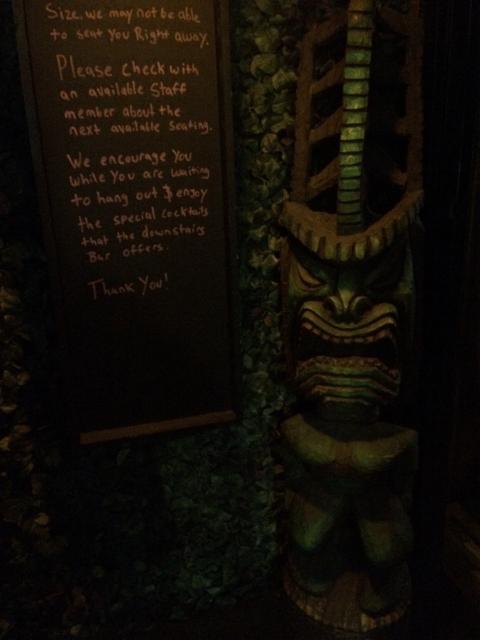 Size, we may not be able
to seat you Right away.
Please check with
an available Staff
member about the
next available Seating.
We encourage You
while you are waiting
to hang out & enjoy
the special cocktails
that the downstairs
Bar offers.
Thank You!